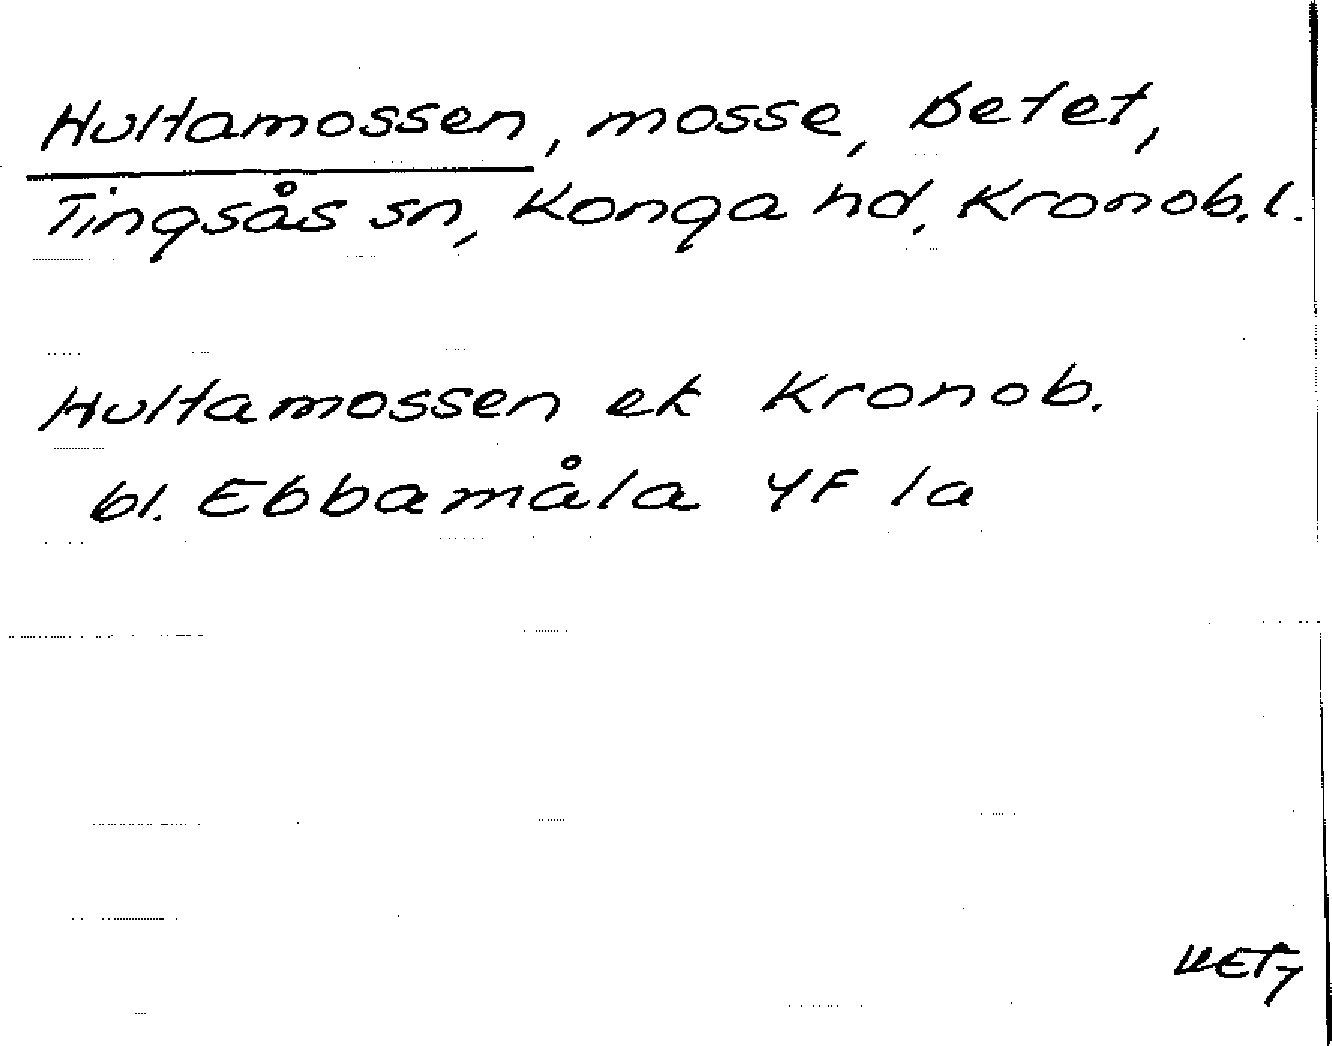 Hultamossen, mosse, Betet,
Tingsås sn, Konga hd, Kronob. l.
Hultamossen ek Kronob.
bl. Ebbamåla 4F 1a